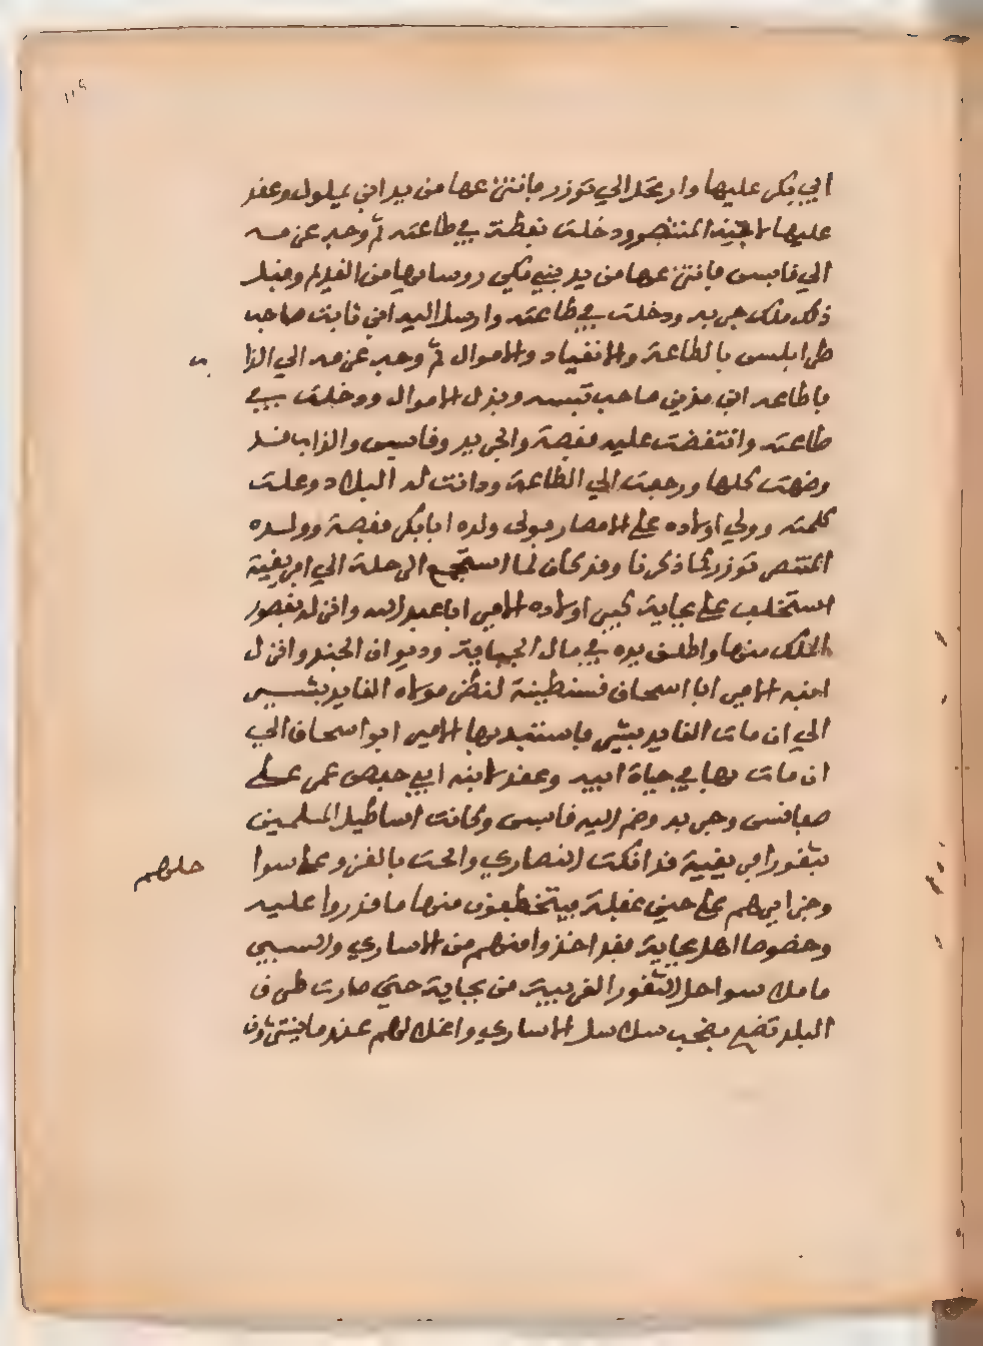 ١١٩
ابي بكر عليها وارتحل الي توزر فانتزعها من يد ابن يملول وعقد
عليها لابنه المنتصر ودخلت نفطة في طاعته ثم وجه عزمه
الي قابس فانتزعها من يد بني مكي روسايها من القديم وقبل
ذلك ملك جربه ودخلت في طاعته وارسل اليه ابن ثابت صاحب
طرابلس بالطاعة والانقياد والاموال ثم وجه عزمه الي الزا ب
فاطاعه ابن مزني صاحب تبسه وبذل الاموال ودخلت في
طاعته وانتفضت عليه قفصة والجريد وقابس والزاب
كلها ورجعت الي الطاعة ودانت له البلاد وعلت
كلمته وولي اولاده علي الامصار فولي ولده ابا بكر قفصة وولده
المنتصر توزر كما ذكرنا وقد كان لما استجمع الرحلة الي افريقية
استخلف علي بجاية كبير اولاده الامير ابا عبد الله وانزله بقصور
الملك منها واطلق يده في مال الجباية وديوان الجند وانزل
ابنه الامير ابا اسحاق قسنطينة لنظر مولاه القايد بشير
الي ان مات القايد بشير فاستبد بها الامير ابو اسحاق الي
ان مات بها في حياة ابيه وعقد لابنه ابي حفص عمر علي
صفاقس وجربه وضم اليه قابس وكانت اساطيل المسلمين
بثغور افريقية قد انكت النصاري والحت بالغزو علي سوا حلهم
وجزايرهم علي حين غفلة فيتخطفون منها ما قدروا عليه
وخصوصا اهل بجاية فقد اخذوا منهم من الاساري والسبي
ما ملا سواحل الثغور الغربية من بجاية حتي صارت طرق
البلد تضج بصخب سلاسل الاساري واغلالهم عند ما ينتثرون